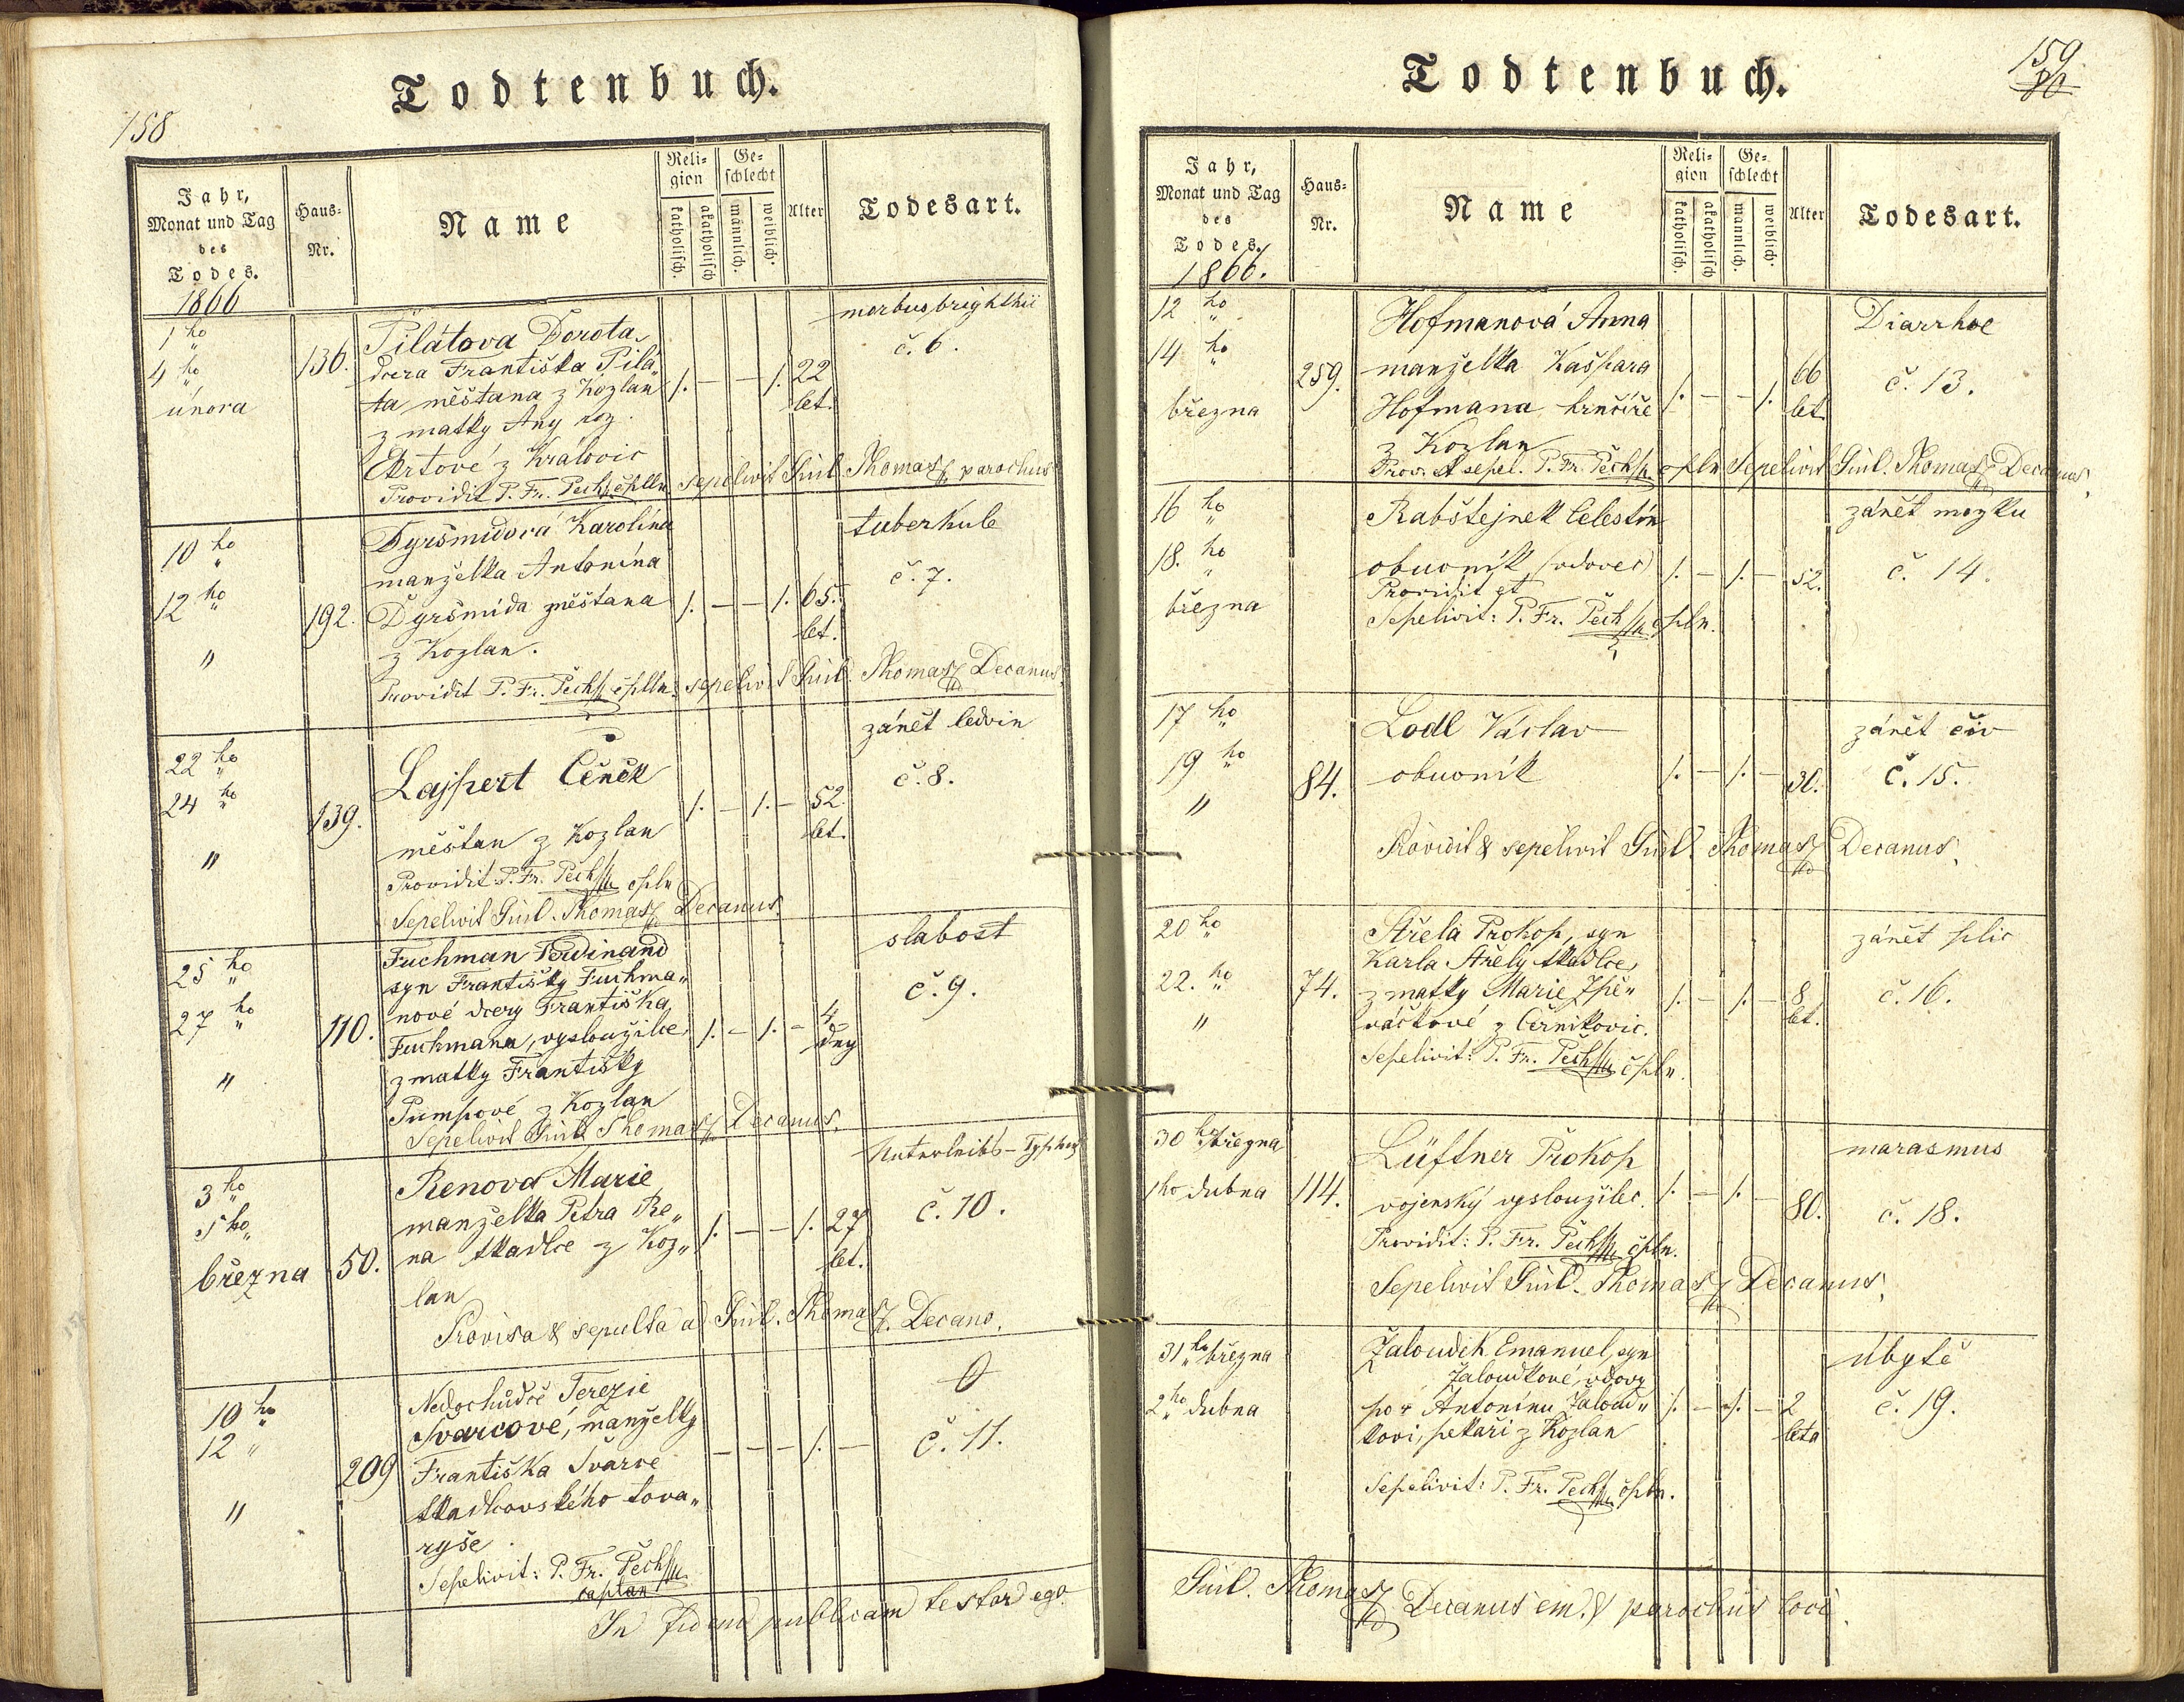 158
Todtenbuch.
Jahr,
Monat und Tag
des
Todes.
Haus-
Nr.
Name
Reli-
gion
katholisch.
akatholisch
Ge-
schlecht
männlich.
weiblich.
Alter
Todesart.
1866
1ho
4ho
února
136.
Pilátova Dorota,
dcera Františka Pilá„
ta měštana z Kozlan
z matky Any roz.
z Královic
Providit P. Fr. Pech cplln Sepelivit Guil. Thomas parochus
1. — — 1. 22
let.
morbus brighthii
č. 6.
10ho
12ho
"
192.
Dyršmidová Karolína
manželka Antonína
Dyršmída měštana
z Kozlan.
Providit P. Fr. Pech cplln. sepelivit Guil. Thomas Decanus.
1. — — 1. 65.
let.
tuberkule
č. 7.
22ho
24ho
"
139.
Lajpert Čeněk
měštan z Kozlan
Providit: P. Fr. Pech cpln
Sepelivit Guil. Thomas Decanus.
1. — 1. — 52.
let.
zánět ledvin
č. 8.
25ho
27ho
"
110.
Fuchman Ferdinand
syn Františky Fuchma„
nové dcery Františka
Fuchmana, vysloužilce
z matky Františky
Pumpové z Kozlan
Sepelivit Guil. Thomas Decanus.
1. — 1. — 4
dny
slabost
č. 9.
3ho
5ho
března
50.
Renova Marie
manželka Petra Re„
na tkadlce z Koz„
lan
Provisa & sepulta a Guil. Thomas Decano.
1. — — 1. 27
let.
Unterleibs-Typhus
č. 10.
10ho
12 "
"
209
Nedochůdče Terezie
Švarcové, manželky
Františka Švarce
tkadlcovského tova„
ryše.
Sepelivit: P. Fr. Pech
caplan
— — — 1. —
0
č. 11.
In fidem publicam testor ego
159
80
Todtenbuch.
Jahr,
Monat und Tag
des
Todes.
Haus-
Nr.
Name
Reli-
gion
katholisch.
akatholisch
Ge-
schlecht
männlich.
weiblich.
Alter
Todesart.
1866.
12ho
14ho
března
259.
Hofmanová Anna
manželka Kašpara
Hofmana hrnčíře
z Kozlan
Prov. et sepel. P. Fr. Pech cpln Sepelivit Guil. Thomas Decanus.
1. — — 1. 66
let.
Diarrhoe
č. 13.
16ho
18.ho
března
Rabštejnek Celestín
obuvník (vdovec)
Providit et
Sepelivit: P. Fr. Pech cpln.
1. — 1. — 52.
zánět mozku
č. 14.
17ho
19ho
"
84.
Lodl Václav
obuvník
Providit & sepelivit Guil. Thomas Decanus.
1. — 1. — 30.
zánět čiv
č. 15.
20ho
22.ho
"
74.
Střela Prokop, syn
Karla Střely tkadlce,
z matky Marie Zpě„
váčkové z Černikovic.
Sepelivit: P. Fr. Pech cpln.
1. — 1. — 8
let.
zánět plic
č. 16.
30ho března
1ho dubna
114.
Lüftner Prokop
vojenský vysloužilec.
Providit: P. Fr. Pech cpln.
Sepelivit Guil. Thomas Decanus.
1. — 1. — 80.
marasmus
č. 18.
31ho března
2ho dubna
Žaloudek Emanuel, syn
Žaloudkové, vdovy
po Antonínu Žaloud„
kovi, pekaři z Kozlan
Sepelivit: P. Fr. Pech cpln.
1. — 1. — 2
léta
úbytě
č. 19.
Guil. Thomas Decanus em. & parochus loci.